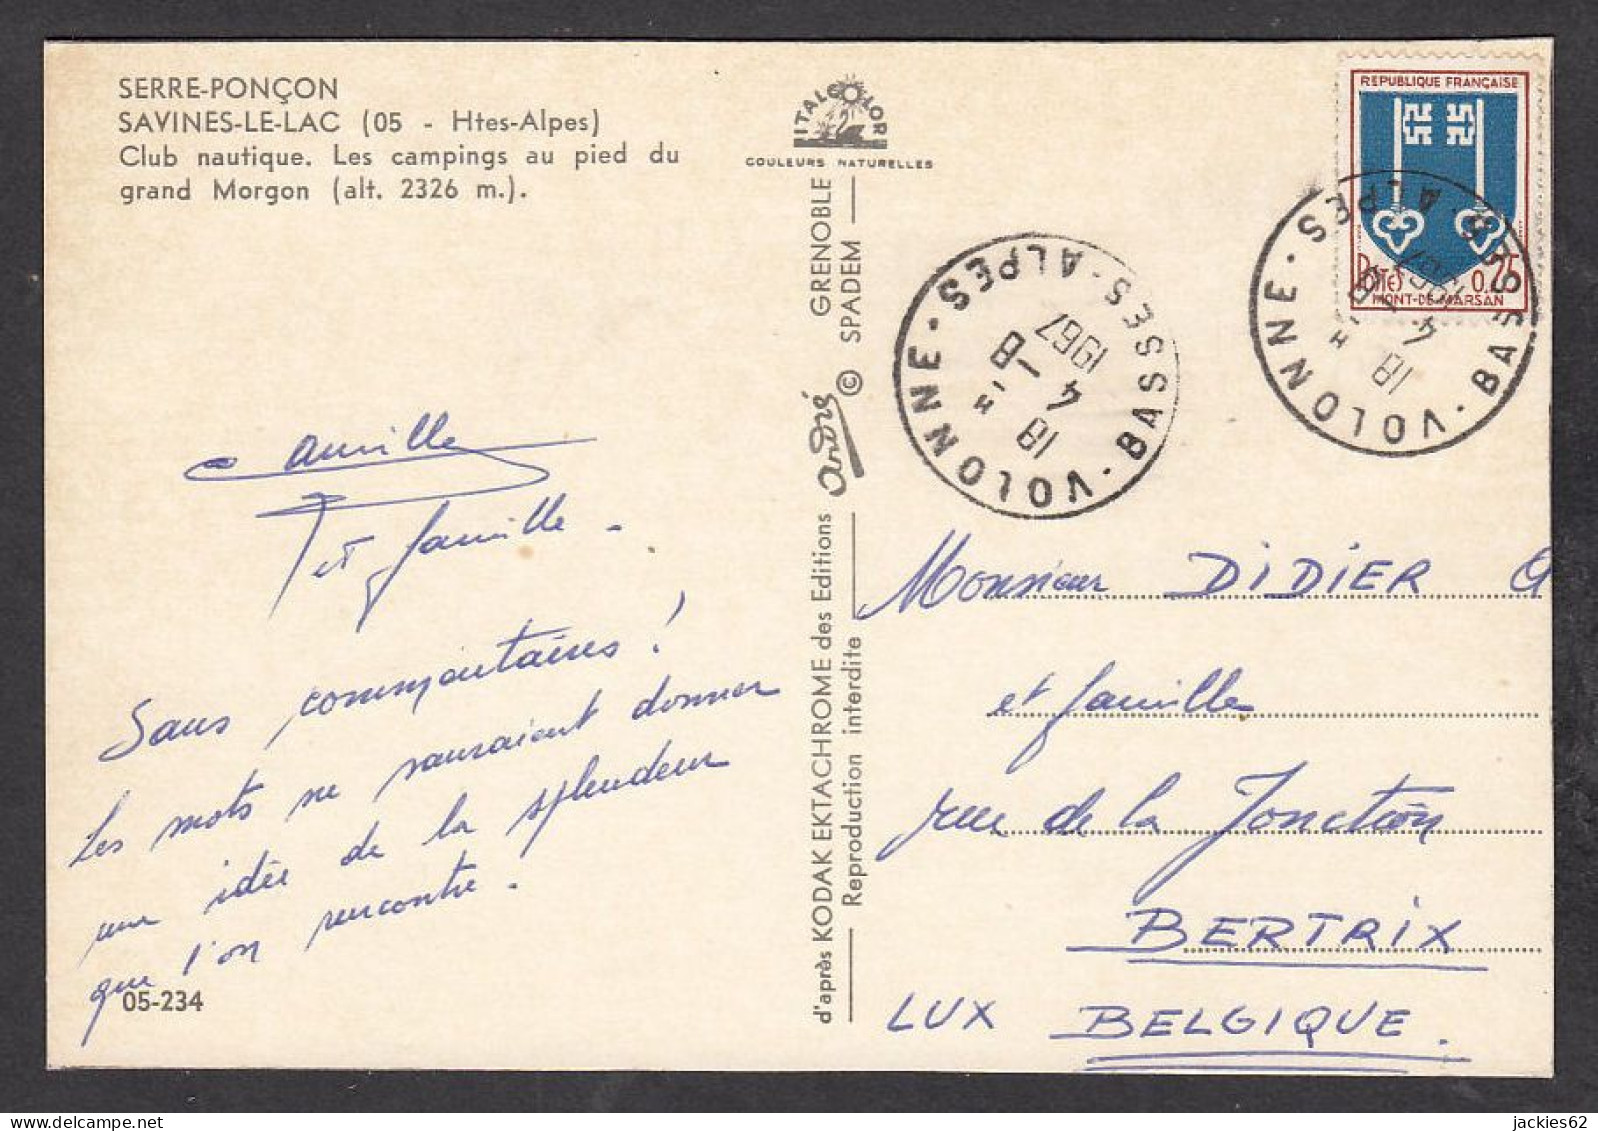 SERRE-PONÇON
SAVINES-LE-LAC (05 - Htes-Alpes)
Club nautique. Les campings au pied du
grand Morgon (alt. 2326 m.).
et famille -
Sans commentaires !
Les mots ne sauraient donner
une idée de la splendeur
que l'on rencontre.
05-234
ITALCOLOR
COULEURS NATURELLES
d'après KODAK EKTACHROME des Editions André GRENOBLE
Reproduction interdite © SPADEM
VOLONNE · BASSES-ALPES
18 H
4 - 8
1967
REPUBLIQUE FRANÇAISE
POSTES 0.25
MONT-DE-MARSAN
VOLONNE · BASSES-ALPES
18 H
4 - 8
1967
Monsieur DIDIER G
et famille
rue de la Jonction
BERTRIX
LUX BELGIQUE.
jackies62